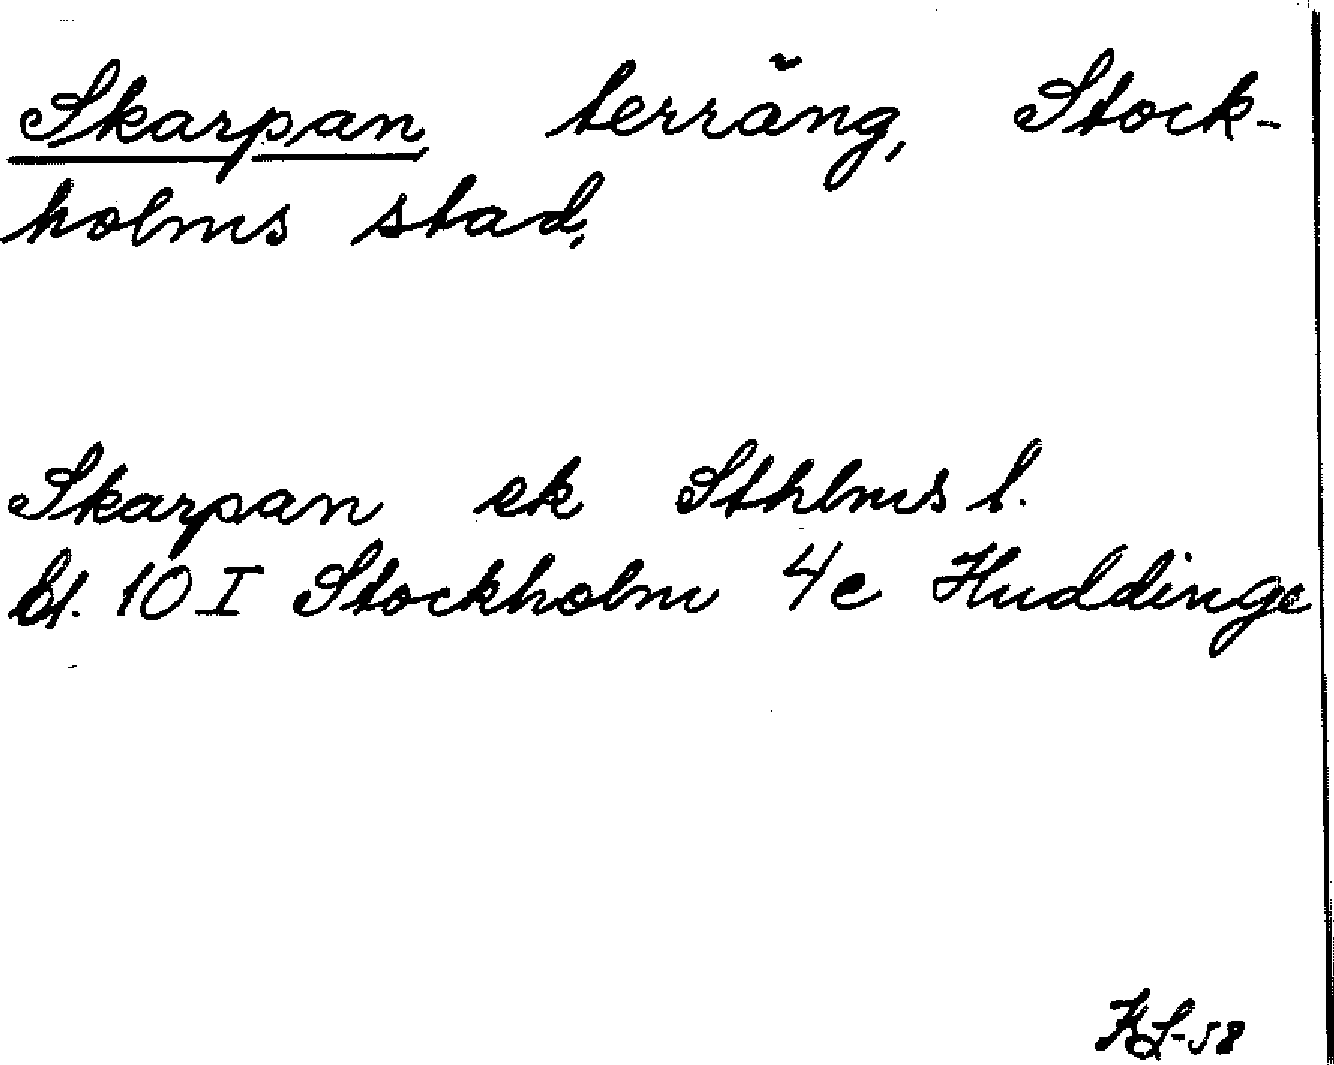 Skarpan terräng, Stock-
holms stad.
Skarpan ek Sthlms l.
bl. 10 I Stockholm 4c Huddinge
KL-58